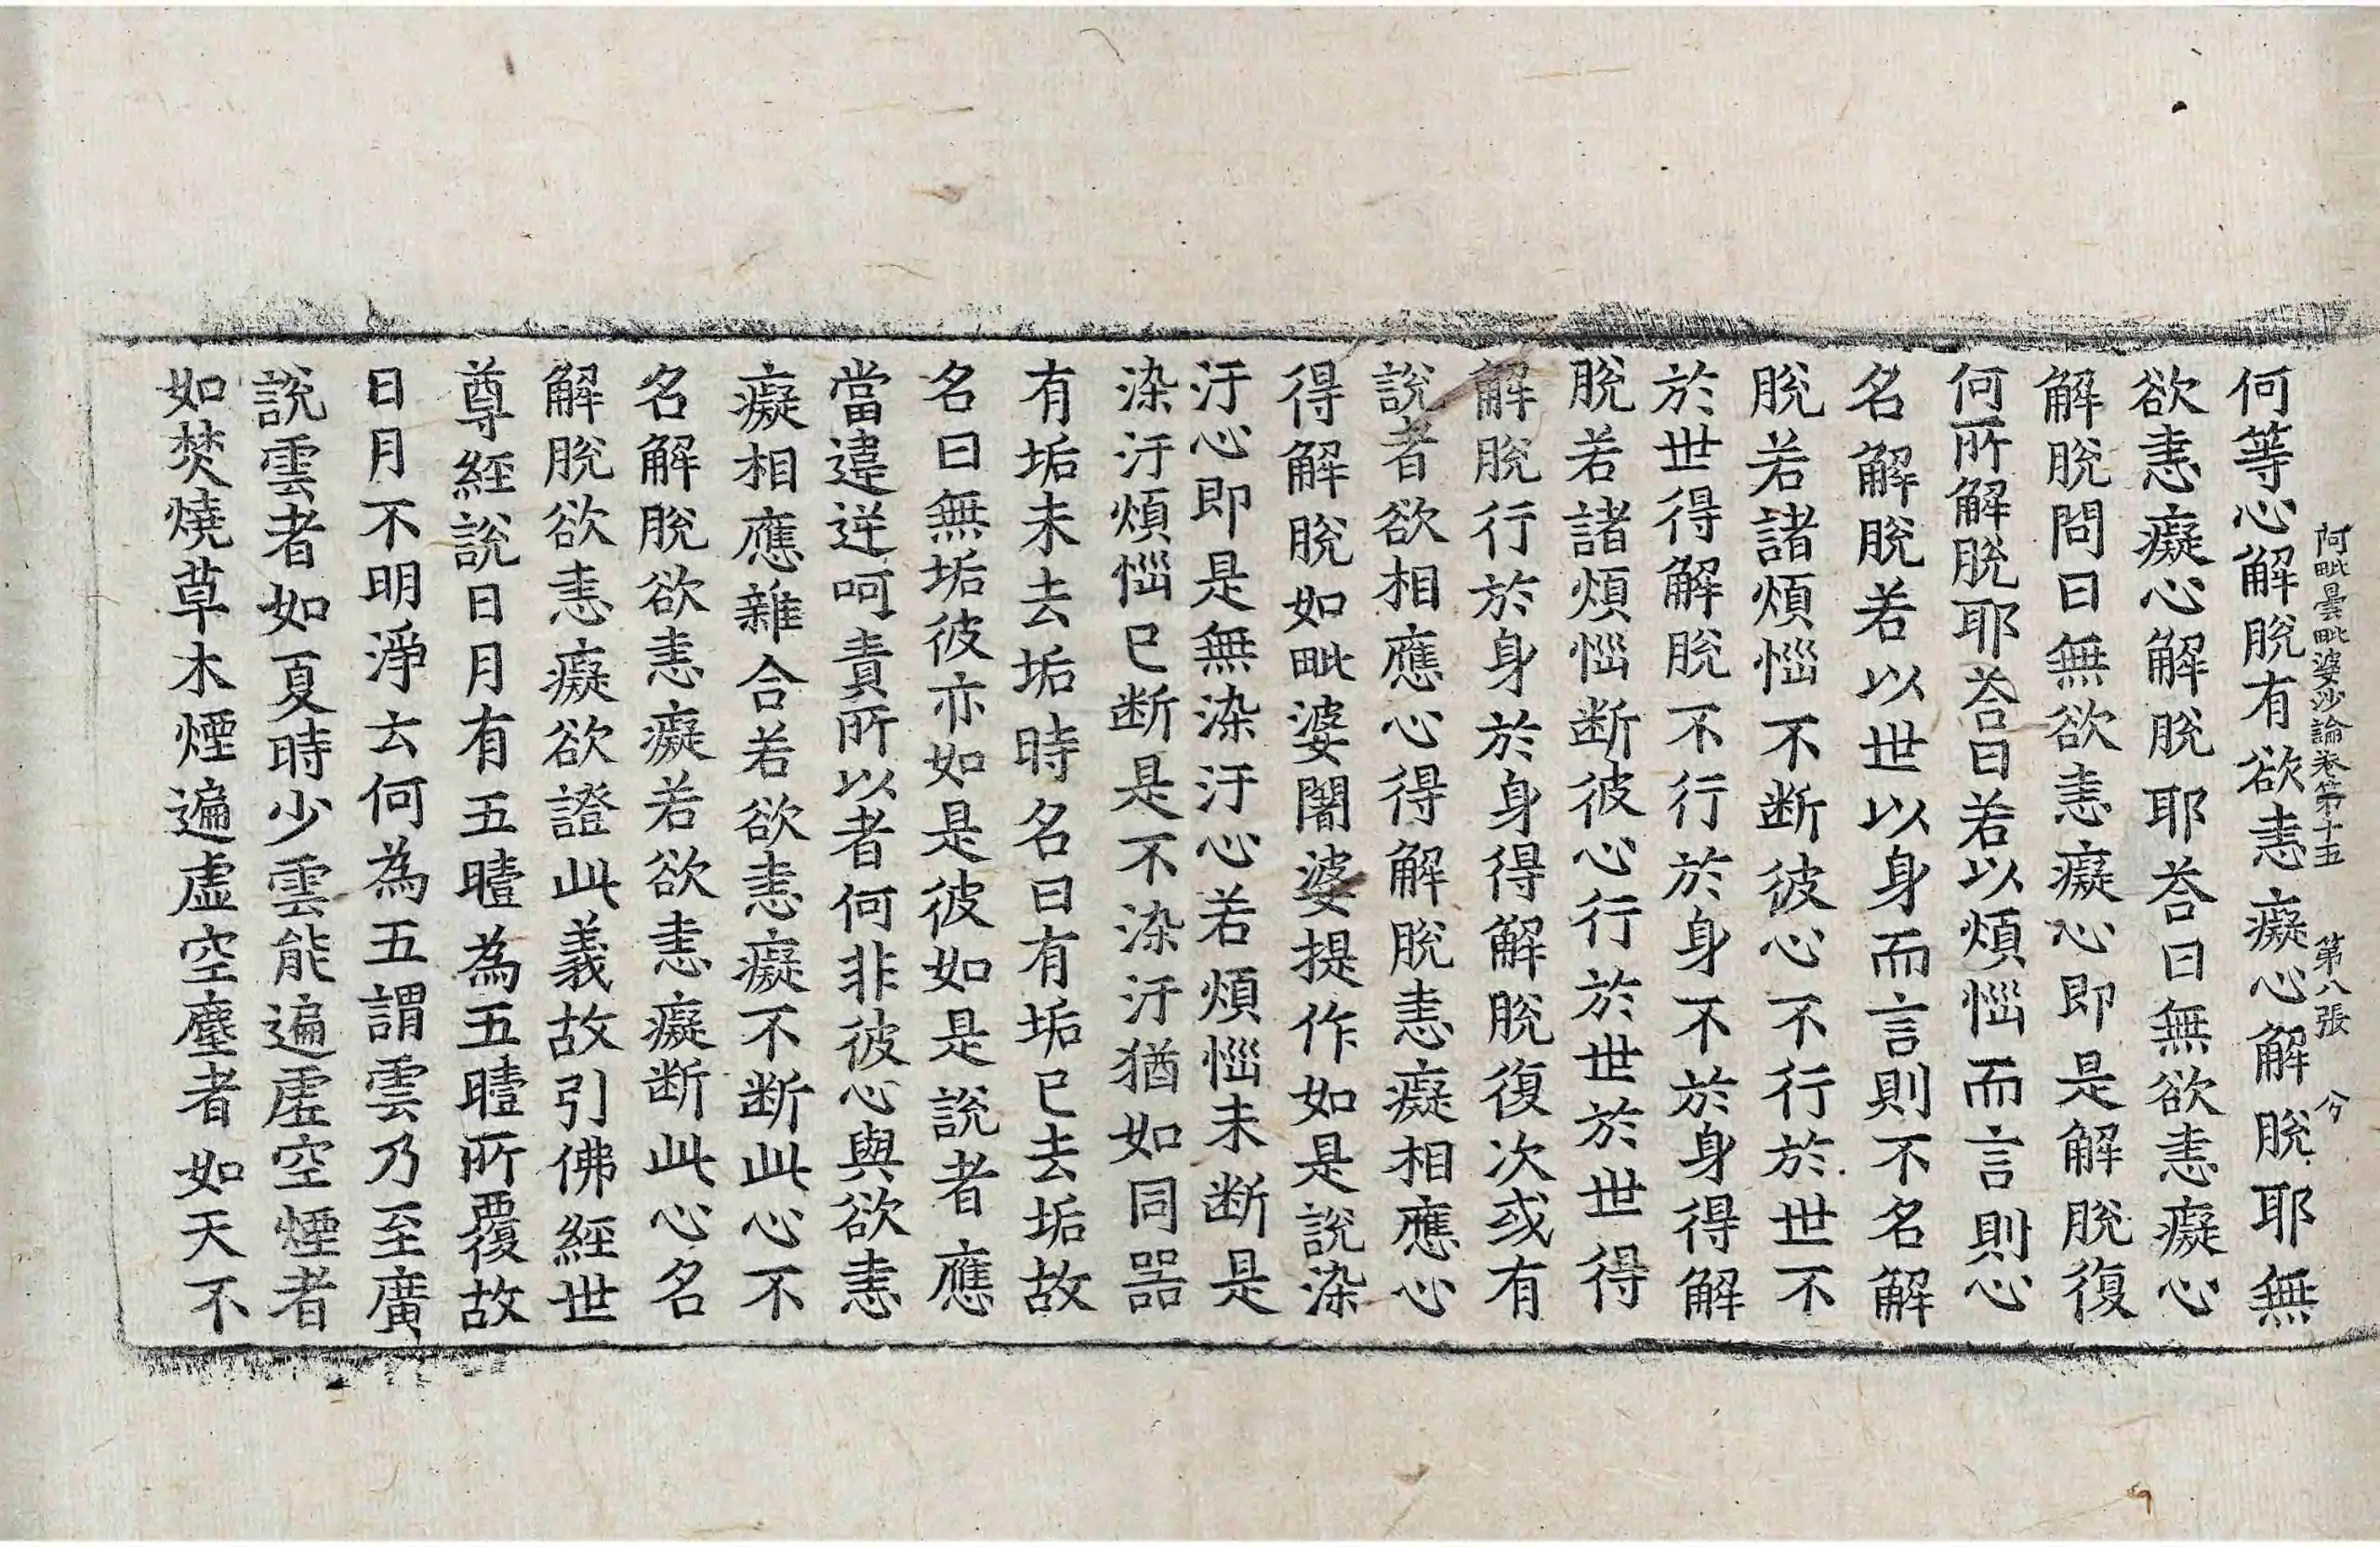 阿毗曇毗婆沙論卷第十五 第八張 兮
何等心解脫有欲恚癡心解脫耶無
欲恚癡心解脫耶荅曰無欲恚癡心
解脫問曰無欲恚癡心即是解脫復
何所解脫耶荅曰若以煩惱而言則心
名解脫若以世以身而言則不名解
脫若諸煩惱不断彼心不行於世不
於世得解脫不行於身不於身得解
脫若諸煩惱断彼心行於世於世得
解脫行於身於身得解脫復次或有
說者欲相應心得解脫恚癡相應心
得解脫如毗婆闍婆提作如是說染
汙心即是無染汙心若煩惱未断是
染汙煩惱已断是不染汙猶如同器
有垢未去垢時名曰有垢已去垢故
名曰無垢彼亦如是彼如是說者應
當違逆呵責所以者何非彼心與欲恚
癡相應雜合若欲恚癡不断此心不
名解脫欲恚癡若欲恚癡断此心名
解脫欲恚癡欲證此義故引佛經世
尊經說日月有五曀為五曀所覆故
日月不明淨云何為五謂雲乃至廣
說雲者如夏時少雲能遍虛空煙者
如焚燒草木煙遍虛空塵者如天不